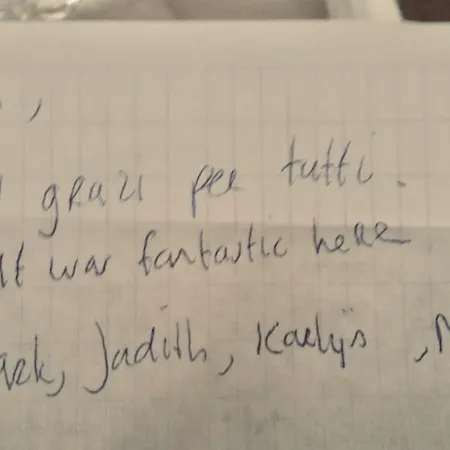 ,
grazi per tutti.
It was fantastic here
ark, Judith, Karlijn, M